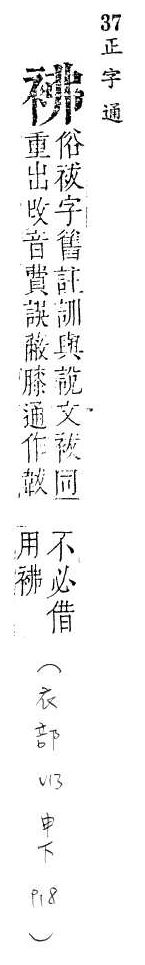 37正字通
俗袚字舊註訓與說文袚同
重出改音費誤蔽膝通作韍
不必借
用
（衣部 V13 申下 P18）